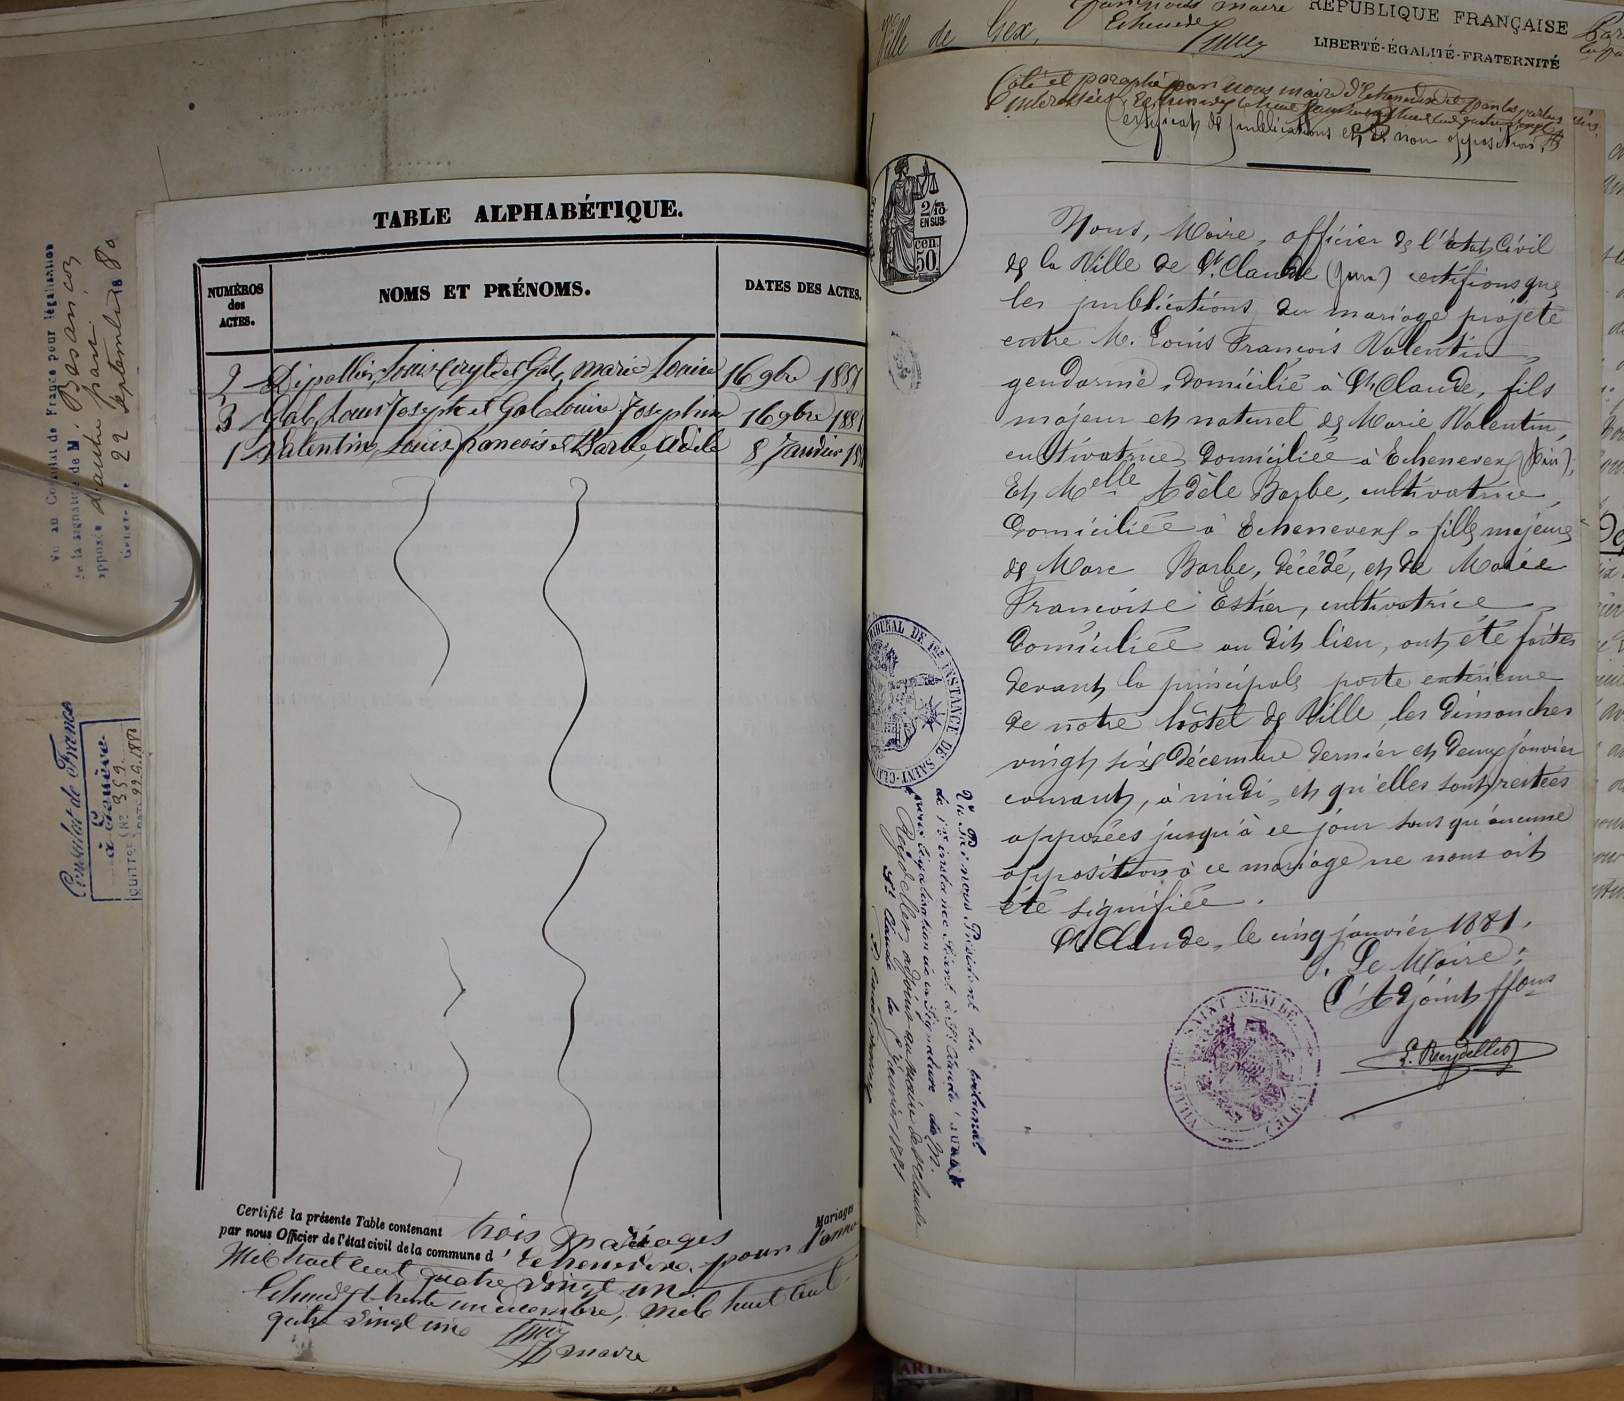 TABLE ALPHABÉTIQUE.
NUMÉROS des ACTES.
NOMS ET PRÉNOMS.
DATES DES ACTES.
2 Dépallier, Louis et Gal, Marie Louise 16 9bre 1881
3 Gal, Louis Joseph et Gal Louise Josephine 16 9bre 1881
1 Valentin, Louis françois et Barbe, Adèle 8 Janvier
Certifié la présente Table contenant trois Mariages
par nous Officier de l'état civil de la commune d'Echenevex, pour l'année
Mil huit cent quatre vingt un
Echenevex trente un décembre, mil huit cent
quatre vingt un
maire
Vu au Consulat de France pour légalisation
de la signature de M. Besançon
apposée d'autre part
22 Septembre 1880
Consulat de France
à Genève
No 359
QUITTCE
Ville de Gex,
maire
RÉPUBLIQUE FRANÇAISE
LIBERTÉ-ÉGALITÉ-FRATERNITÉ
Coté et paraphé par nous maire d'Echenevex et par les parties
intéressées
Certificat de publications et de non opposition
2/10
EN SUS
50 cen.
Nous, Maire, officier de l'état Civil
de la Ville de St. Claude (Jura) certifions que
les publications du mariage projeté
entre M. Louis François Valentin
gendarme, domicilié à St Claude, fils
majeur et naturel de Marie Valentin,
cultivatrice, domiciliée à Echenevex (Ain),
Et Melle Adèle Barbe, cultivatrice,
domiciliée à Echenevex, fille majeure
de Marc Barbe, décédé, et de Marie
Françoise Estier, cultivatrice
domiciliée au dit lieu, ont été faites
devant la principale porte extérieure
de notre hôtel de Ville, les dimanches
vingt six Décembre dernier et deux janvier
courant, à midi, et qu'elles sont restées
apposées jusqu'à ce jour sans qu'aucune
opposition à ce mariage ne nous ait
été signifiée.
St Claude, le cinq janvier 1881.
Le Maire,
L'Adjoint ffons
VILLE DE SAINT CLAUDE (JURA)
TRIBUNAL DE 1RE INSTANCE DE SAINT-CLAUDE
Vu Par nous Président du tribunal
de 1re instance Séant à St Claude (Jura)
pour légalisation de la Signature de M.
adjoint au maire de St Claude
St Claude le Janvier 1881